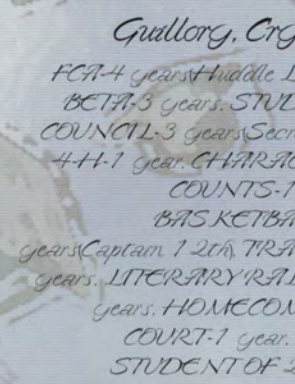 Guillory, Cry
FCA-4 years(Huddle L
BETA-3 years. STUD
COUNCIL-3 years(Secr
4-H-1 year. CHARAC
COUNTS-1
BASKETBA
years(Captain 12th), TRA
years. LITERARY RAL
years. HOMECOM
COURT-1 year.
STUDENT OF 2